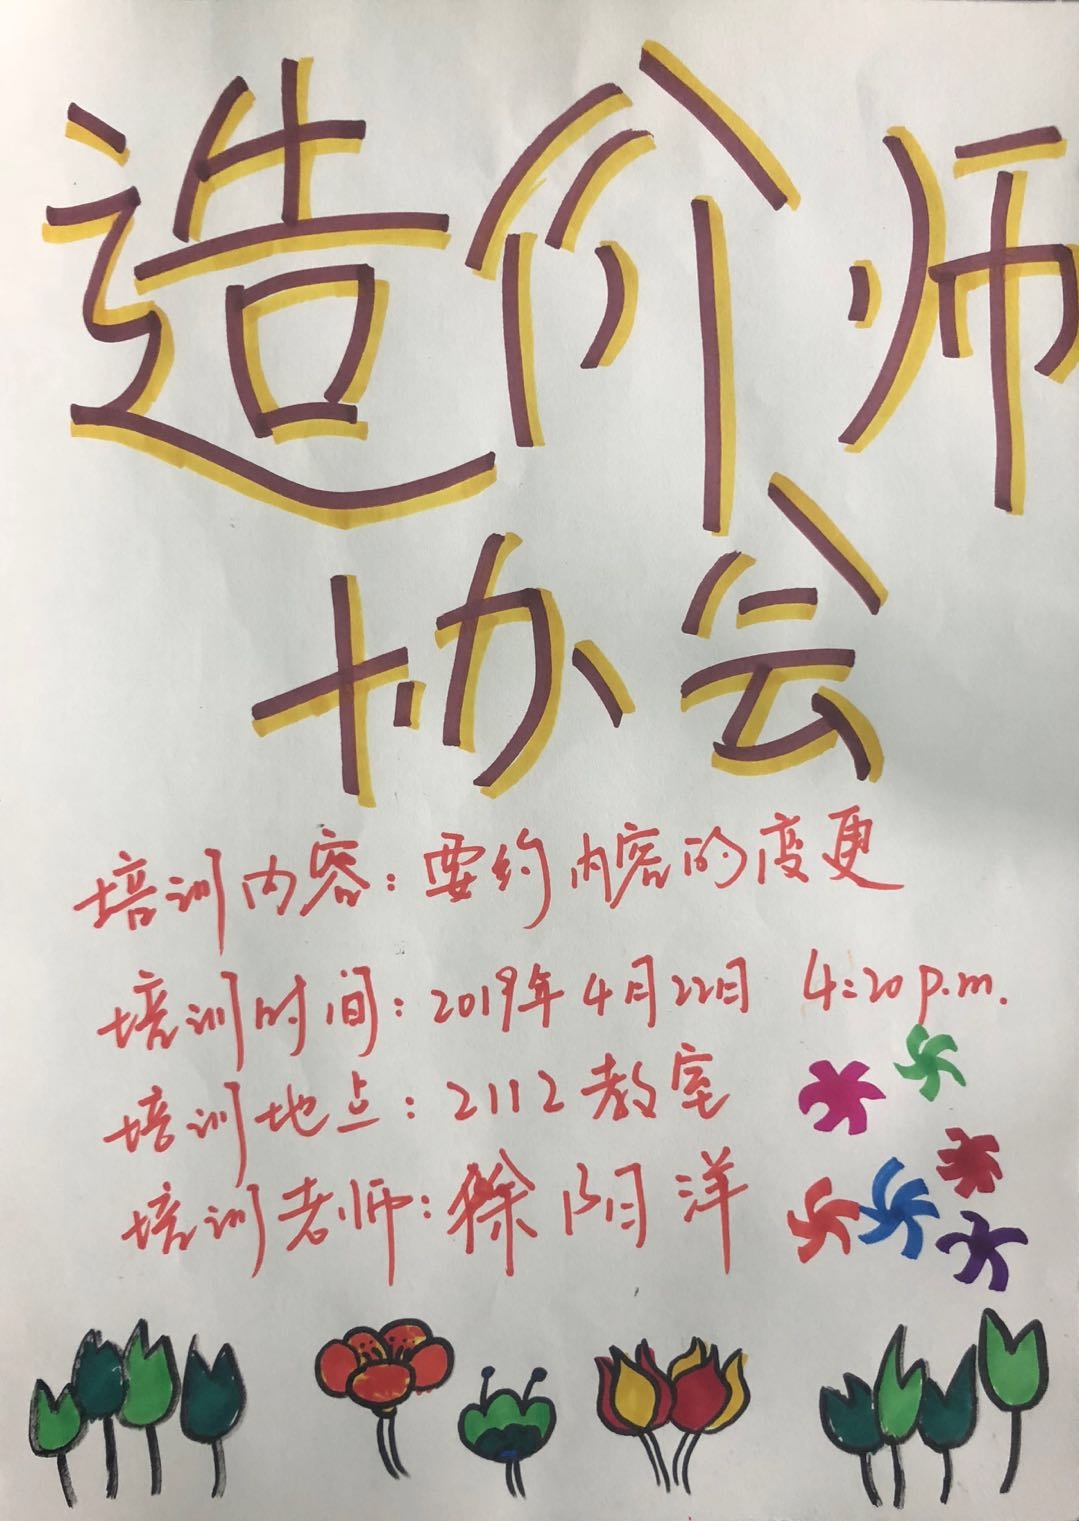 造价师
协会
培训内容：要约内容的变更
培训时间：2019年4月22日 4:20p.m.
培训地点：2112教室
培训老师：徐阳洋